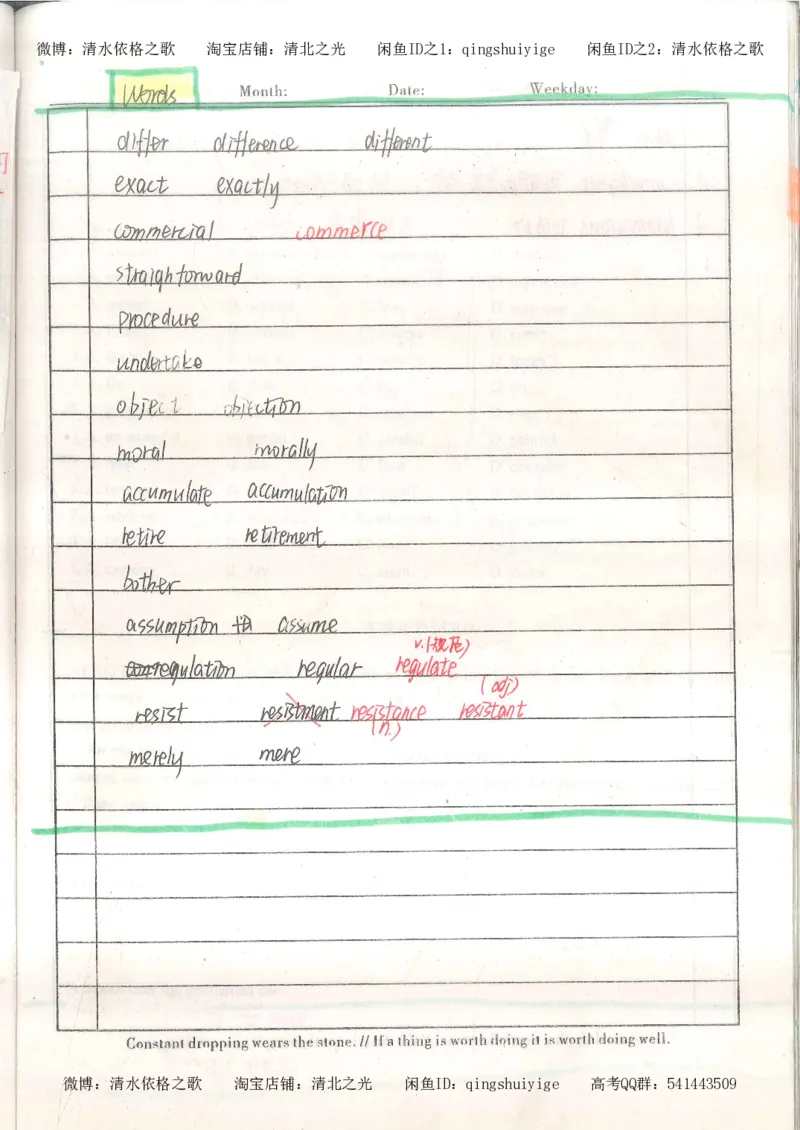 微博：清水依格之歌 淘宝店铺：清北之光 闲鱼ID之1：qingshuiyige 闲鱼ID之2：清水依格之歌
Words Month: Date: Weekday:
differ difference different
exact exactly
commercial commerce
straighforward
procedure
undertake
object objection
moral morally
accumulate accumulation
retire retirement
bother
assumption 由 assume
v.(规范)
regulation regular regulate
(adj)
resist resistment resistance resistant
(n.)
merely mere
Constant dropping wears the stone. // If a thing is worth doing it is worth doing well.
微博：清水依格之歌 淘宝店铺：清北之光 闲鱼ID：qingshuiyige 高考QQ群：541443509